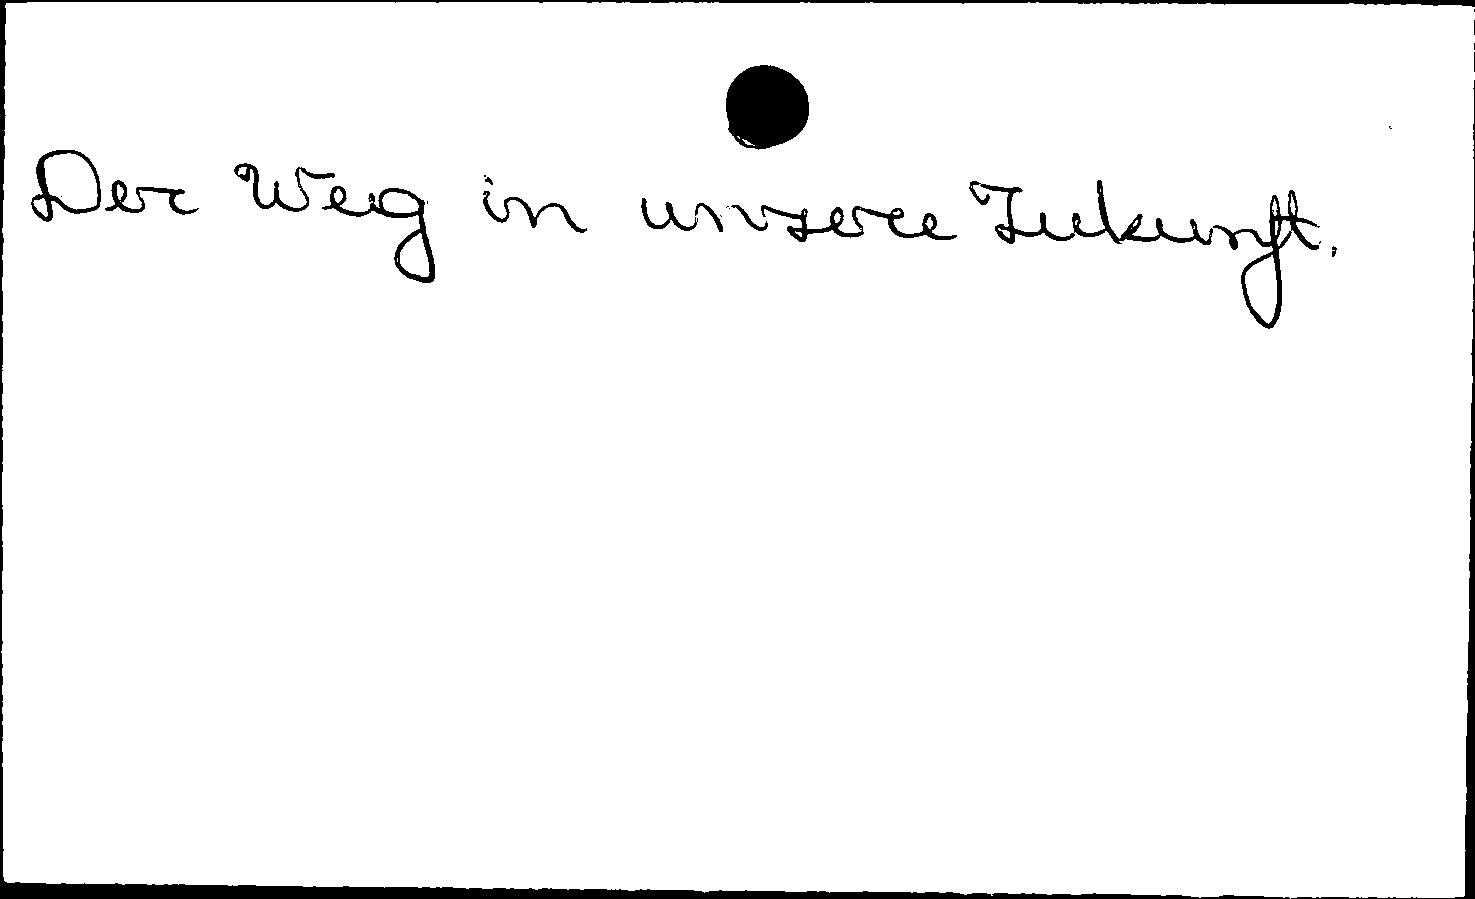 Der Weg in unsere Zukunft.